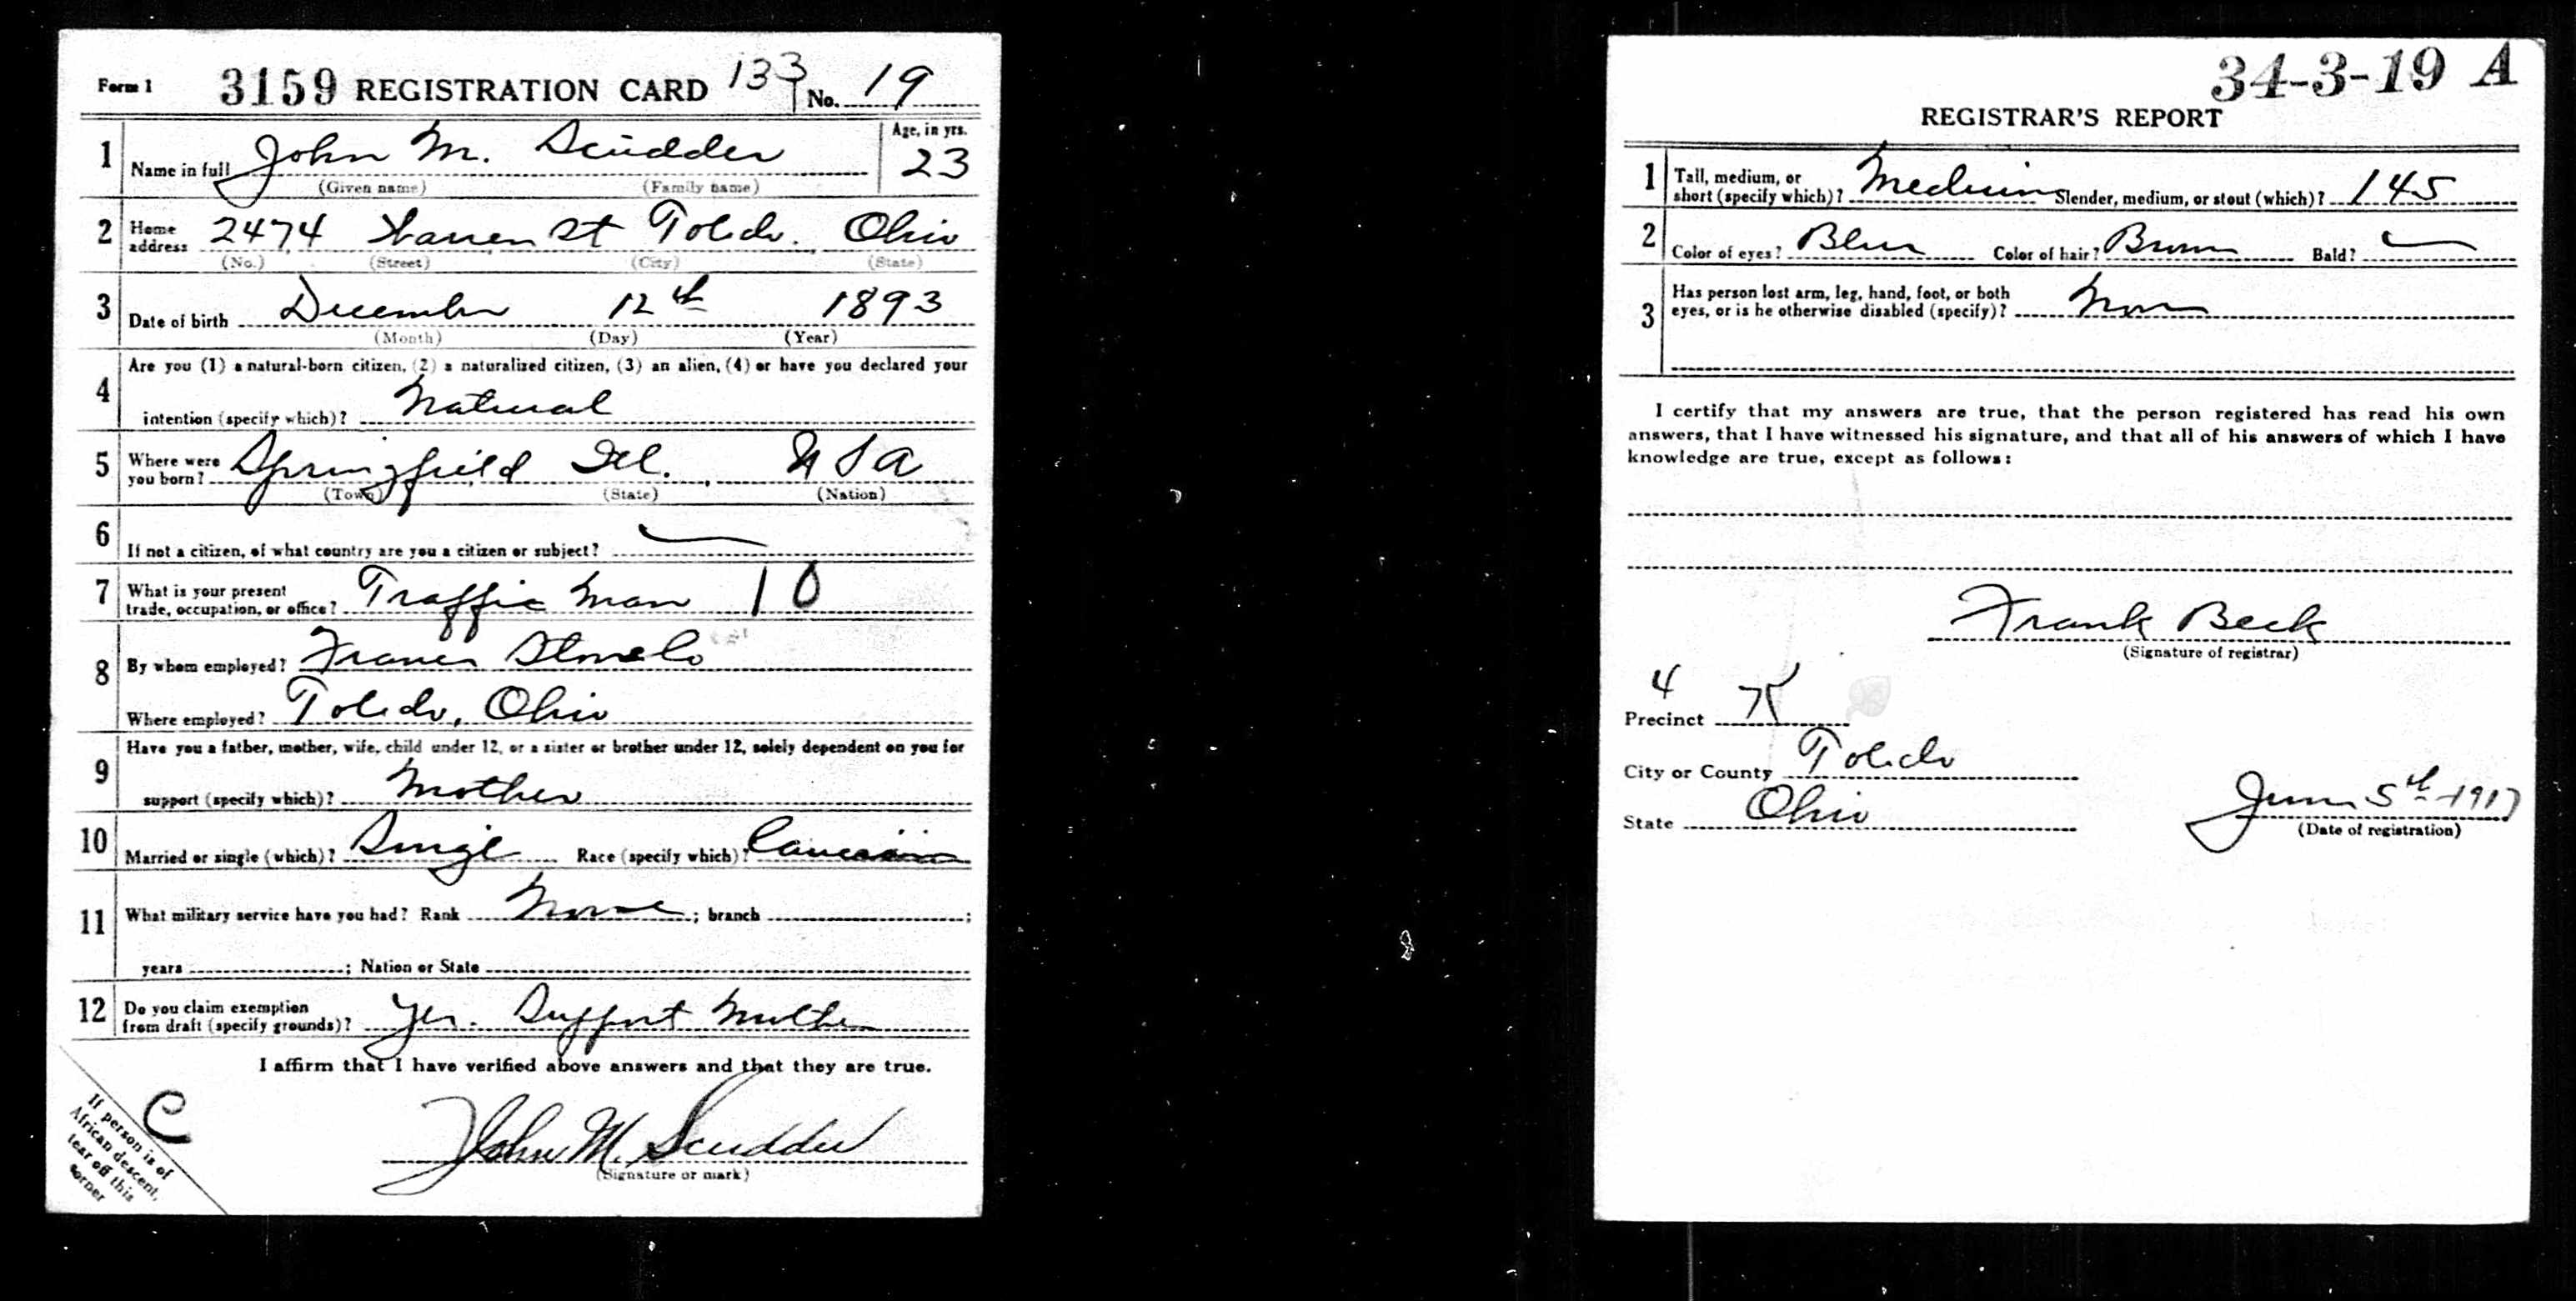 Form 1 3159 REGISTRATION CARD 133 No. 19
1 Name in full John M. Scudder Age, in yrs. 23
(Given name) (Family name)
2 Home address 2474 Warren St Toledo, Ohio
(No.) (Street) (City) (State)
3 Date of birth December 12th 1893
(Month) (Day) (Year)
4 Are you (1) a natural-born citizen, (2) a naturalized citizen, (3) an alien, (4) or have you declared your
intention (specify which)? Natural
5 Where were you born? Springfield Ill. USA
(Town) (State) (Nation)
6 If not a citizen, of what country are you a citizen or subject? —
7 What is your present trade, occupation, or office? Traffic Man 10
8 By whom employed?
Where employed? Toledo, Ohio
9 Have you a father, mother, wife, child under 12, or a sister or brother under 12, solely dependent on you for
support (specify which)? Mother
10 Married or single (which)? Single Race (specify which)? Caucasian
11 What military service have you had? Rank None; branch ;
years ; Nation or State
12 Do you claim exemption from draft (specify grounds)? Yes. Support Mother
I affirm that I have verified above answers and that they are true.
John M. Scudder
(Signature or mark)
C
If person is of
African descent,
tear off this
corner
34-3-19 A
REGISTRAR'S REPORT
1 Tall, medium, or short (specify which)? Medium Slender, medium, or stout (which)? 145
2 Color of eyes? Blue Color of hair? Brown Bald? —
3 Has person lost arm, leg, hand, foot, or both
eyes, or is he otherwise disabled (specify)? None
I certify that my answers are true, that the person registered has read his own
answers, that I have witnessed his signature, and that all of his answers of which I have
knowledge are true, except as follows:
Frank Beck
(Signature of registrar)
4
Precinct K
City or County Toledo
State Ohio
June 5th-1917
(Date of registration)